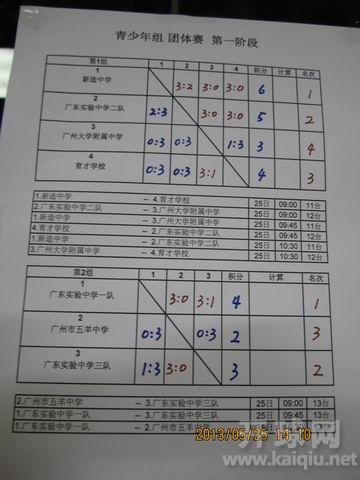 青少年组 团体赛 第一阶段
第1组 1 2 3 4 积分 计算 名次
1 新造中学 3:2 3:0 3:0 6 1
2 广东实验中学二队 2:3 3:0 3:0 5 2
3 广州大学附属中学 0:3 0:3 1:3 3 4
4 育才学校 0:3 0:3 3:1 4 3
1.新造中学 – 4.育才学校 25日 09:00 11台
2.广东实验中学二队 – 3.广州大学附属中学 25日 09:00 12台
1.新造中学 – 3.广州大学附属中学 25日 09:45 11台
4.育才学校 – 2.广东实验中学二队 25日 09:45 12台
1.新造中学 – 2.广东实验中学二队 25日 10:30 11台
3.广州大学附属中学 – 4.育才学校 25日 10:30 12台
第2组 1 2 3 积分 计算 名次
1 广东实验中学一队 3:0 3:1 4 1
2 广州市五羊中学 0:3 0:3 2 3
3 广东实验中学三队 1:3 3:0 3 2
2.广州市五羊中学 – 3.广东实验中学三队 25日 09:00 13台
1.广东实验中学一队 – 3.广东实验中学三队 25日 09:45 13台
1.广东实验中学一队 – 2.广州市五羊中学 25日 10:30 13台
2013/05/25 14:10
开球网
www.kaiqiu.net